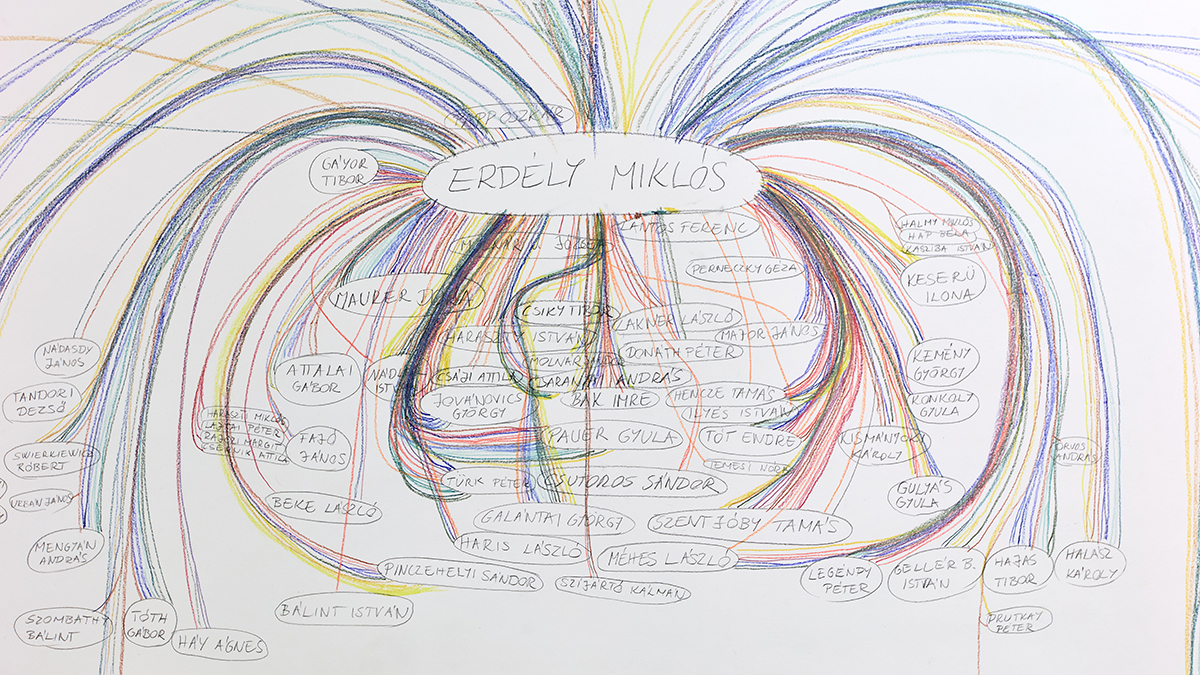 PAPP OSZKÁR
GÁYOR
TIBOR
ERDÉLY MIKLÓS
LANTOS FERENC
MOLNÁR V. JÓZSEF
HALMY MIKLÓS
HAP BÉLA
KASZIBA ISTVÁN
PERNECZKY GÉZA
KESERÜ
ILONA
MAURER DÓRA
CSIKY TIBOR
LAKNER LÁSZLÓ
HARASZTŸ ISTVÁN
MAJOR JÁNOS
NÁDASDY
JÁNOS
DONÁTH PÉTER
MOLNÁR SÁNDOR
KEMÉNY
GYÖRGY
ATTALAI
GÁBOR
CSÁJI ATTILA
CSARANKAI ANDRÁS
TANDORI
DEZSŐ
JOVÁNOVICS
GYÖRGY
BAK IMRE
HENCZE TAMÁS
ILYÉS ISTVÁN
KONKOLY
GYULA
HARASZTI MIKLÓS
LAJTAI PÉTER
RAJCZI MARGIT
CSERNIK ATTILA
FAJÓ
JÁNOS
PAUER GYULA
TÓT ENDRE
KISMÁNYOKY
KÁROLY
ORVOS
ANDRÁS
SWIERKIEWICZ
RÓBERT
TÜRK PÉTER
CSUTOROS SÁNDOR
URBÁN JÁNOS
BEKE LÁSZLÓ
GULYÁS
GYULA
GALÁNTAI GYÖRGY
SZENTJÓBY TAMÁS
MENGYÁN
ANDRÁS
HARIS LÁSZLÓ
MÉHES LÁSZLÓ
PINCZEHELYI SÁNDOR
SZIJÁRTÓ KÁLMÁN
LEGÉNDY
PÉTER
GELLÉR B.
ISTVÁN
HAJAS
TIBOR
HALÁSZ
KÁROLY
BÁLINT ISTVÁN
SZOMBATHY
BÁLINT
TÓTH
GÁBOR
HÁY ÁGNES
PRUTKAY
PÉTER